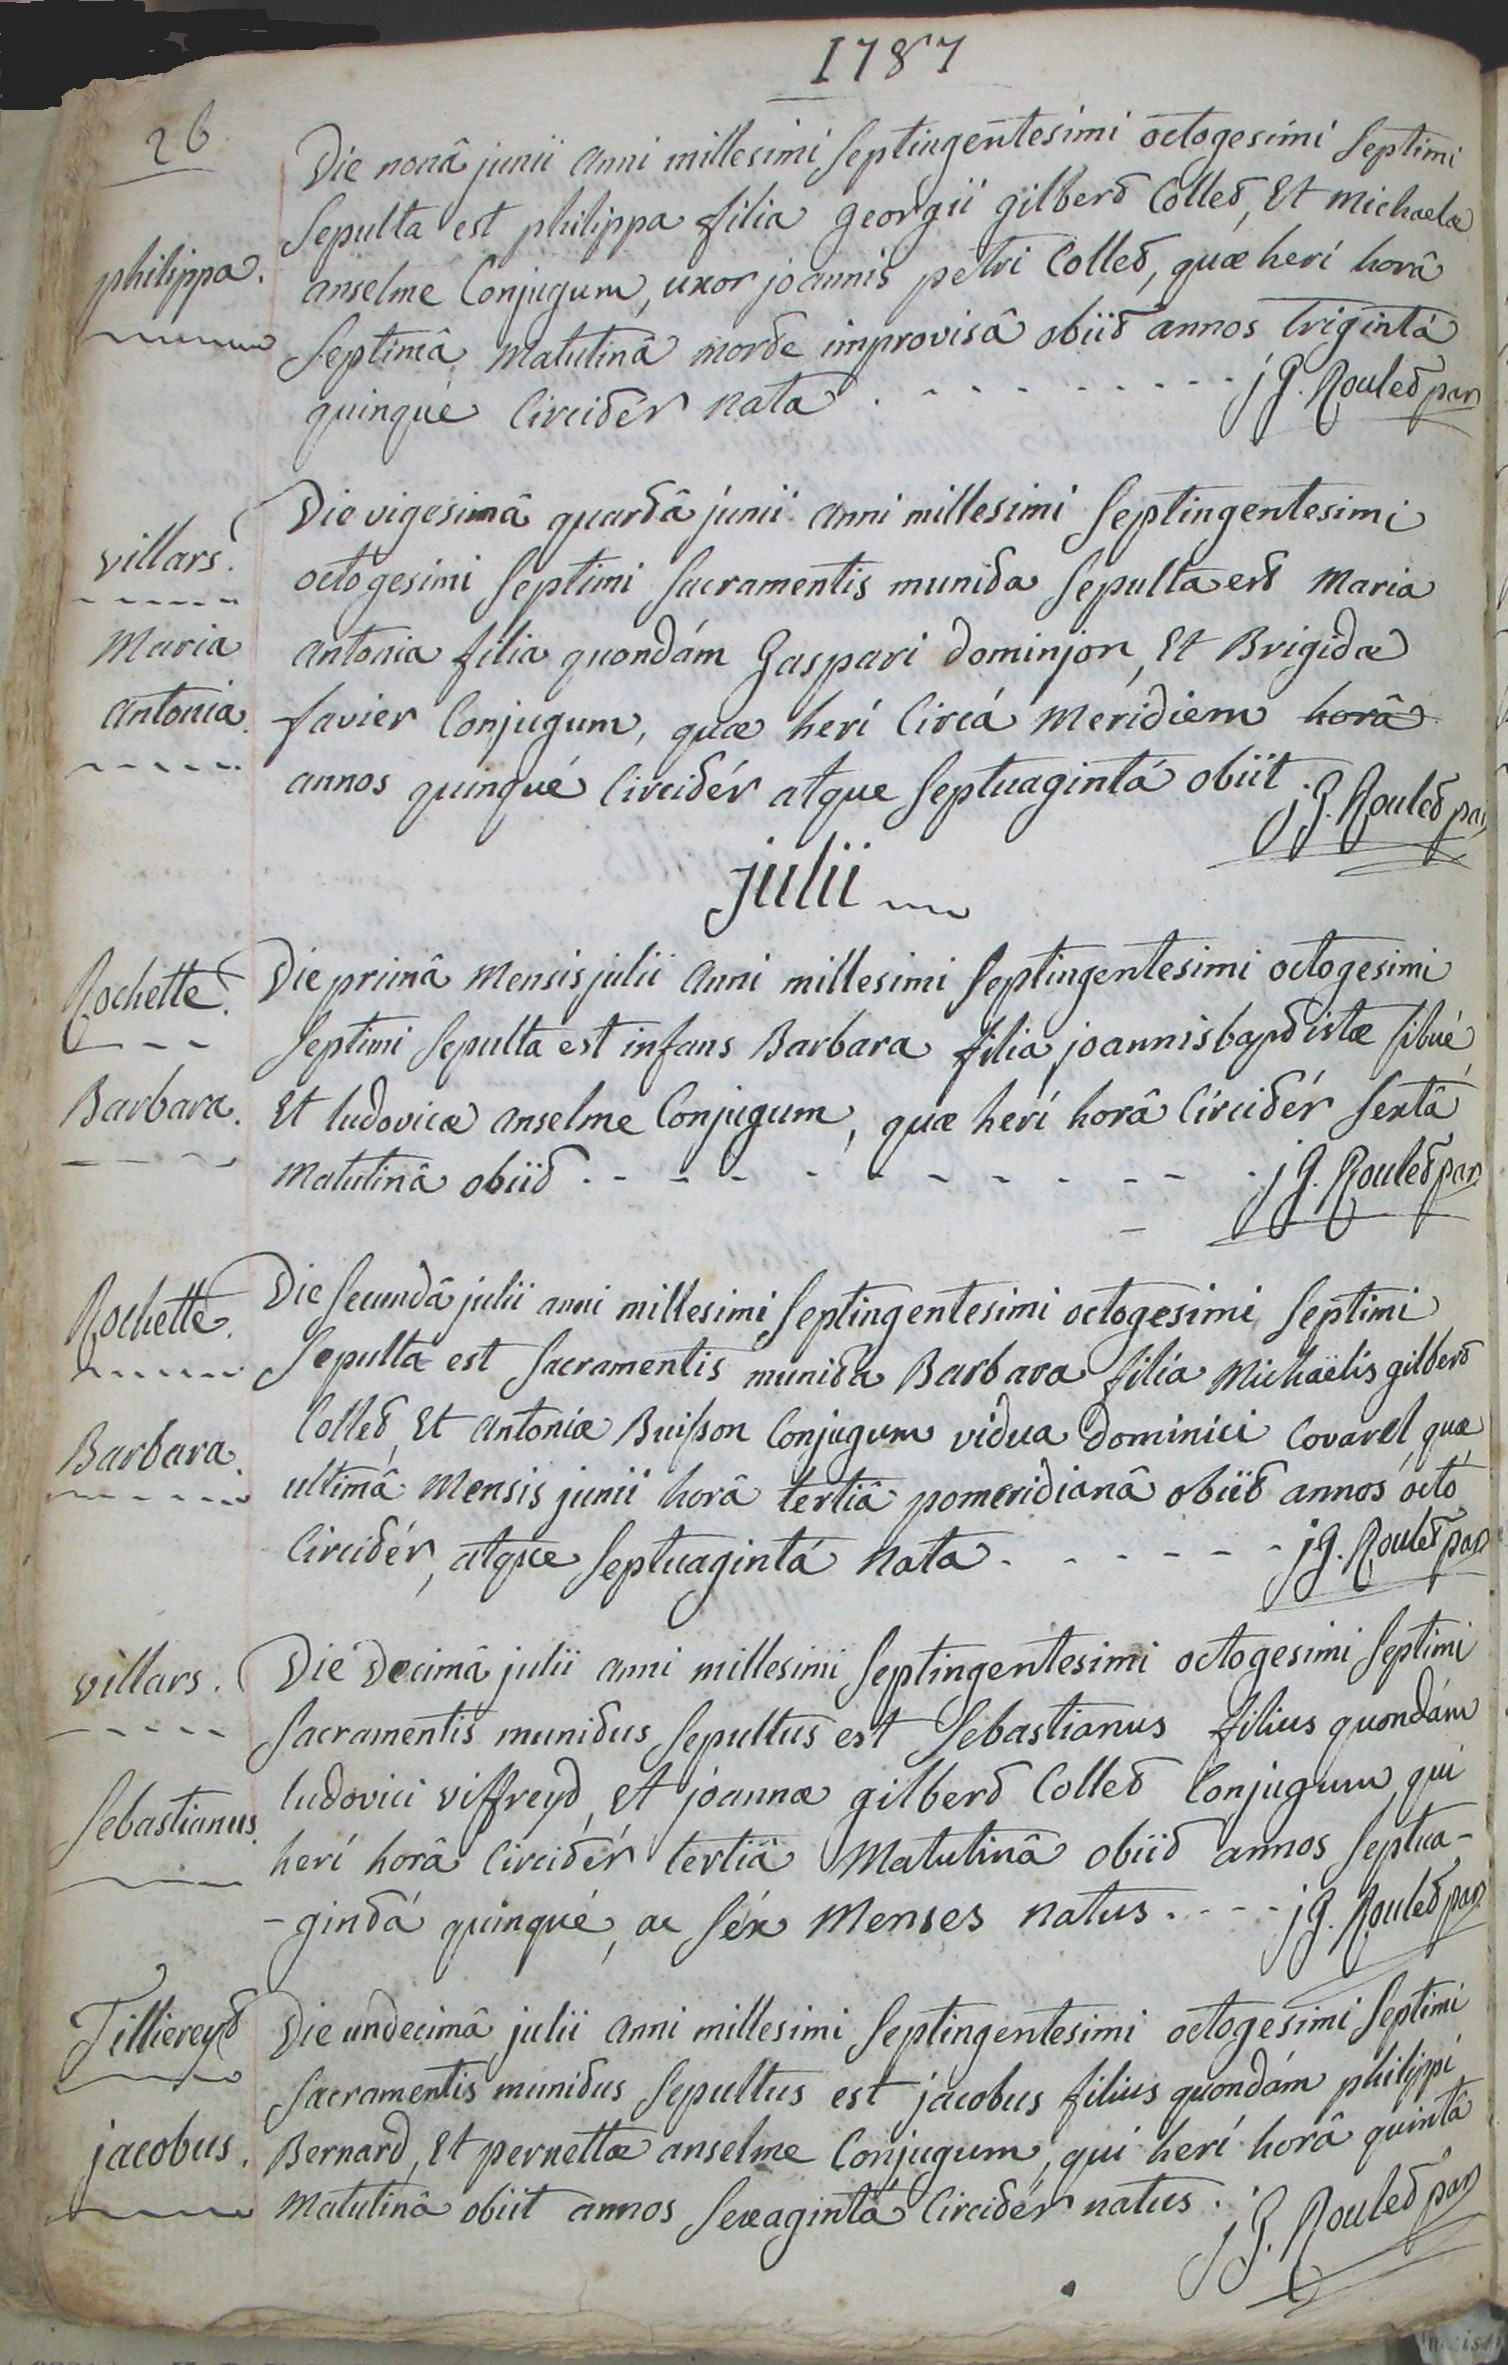 1787
26
philippa.
Die nonâ junii anni millesimi septingentesimi octogesimi septimi
sepulta est philippa filia georgii gilbert Collet, Et Michaelæ
anselme Conjugum, uxor joannis petri Collet, quæ herí horâ
septimâ matutinâ morte improvisâ obiit annos trigintá
quinqué Circitér nata . - - - - - - - - - j G. Roulet par
villars.
Maria
antonia.
Die vigesimâ quartâ junii anni millesimi septingentesimi
octogesimi septimi sacramentis munita sepulta est Maria
antonia filia quondám Gaspari dominjon, Et Brigidæ
favier Conjugum, quæ herí Circá Meridiem horâ
annos quinqué Circitér atque septuagintá obiit . j G. Roulet par
julii
Rochette.
Barbara.
Die primâ Mensis julii anni millesimi septingentesimi octogesimi
septimi sepulta est infans Barbara filia joannis baptistæ sibué
Et ludovicæ anselme Conjugum, quæ herí horâ Circitér sextâ
Matutinâ obiit . - - - - - - - - - - j G. Roulet par
Rochette.
Barbara.
Die secundâ julii anni millesimi septingentesimi octogesimi septimi
sepulta est sacramentis munita Barbara filia Michaëlis gilbert
Collet, Et antoniæ Buisson Conjugum vidua dominici Covarel, quæ
ultimâ Mensis junii horâ tertiâ pomeridianâ obiit annos octó
Circitér, atque septuagintá nata . - - - - - j G. Roulet par
villars.
Sebastianus.
Die decimâ julii anni millesimi septingentesimi octogesimi septimi
sacramentis munitus sepultus est Sebastianus filius quondám
ludovici viffreyd, et joannæ gilbert Collet Conjugum, qui
herí horâ Circitér tertiâ Matutinâ obiit annos septua-
-gintá quinqué, ac séx Menses natus . - - - j G. Roulet par
Tilliereyt
jacobus.
Die undecimâ julii anni millesimi septingentesimi octogesimi septimi
sacramentis munitus sepultus est jacobus filius quondám philippi
Bernard, Et pernettæ anselme Conjugum, qui herí horâ quintâ
Matutinâ obiit annos sexagintá Circitér natus . j G. Roulet par